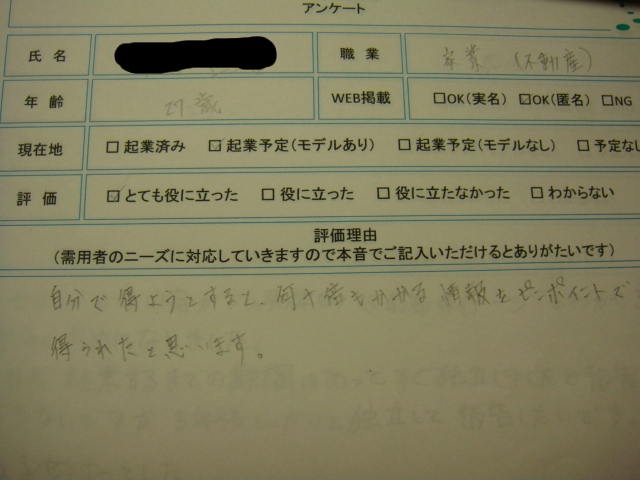 アンケート
氏 名
職 業 (不動産)
年 齢 27歳 WEB掲載 □OK(実名) ☑OK(匿名) □NG
現在地 □ 起業済み ☑ 起業予定(モデルあり) □ 起業予定(モデルなし) □ 予定なし
評 価 ☑ とても役に立った □ 役に立った □ 役に立たなかった □ わからない
評価理由
(需用者のニーズに対応していきますので本音でご記入いただけるとありがたいです)
自分で得ようとすると、何十倍もかかる情報をピンポイントで
得られたと思います。